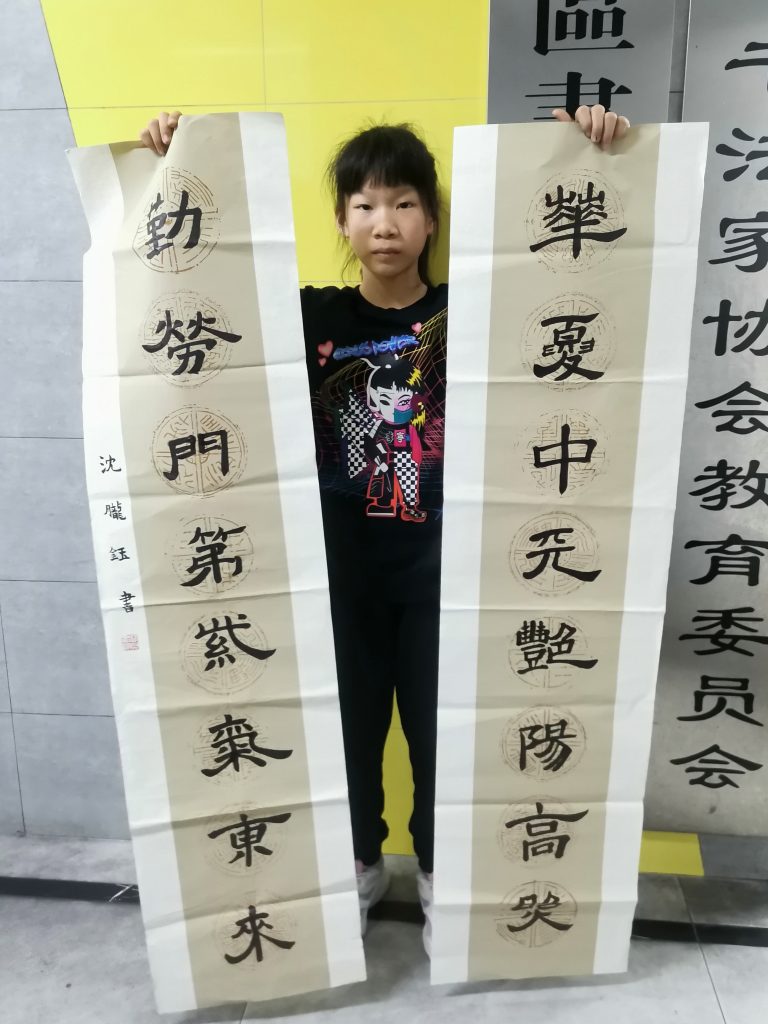 華夏中天艷陽高
勤勞門第紫氣東來
沈朧鈺書
區書
法家协会教育委员会